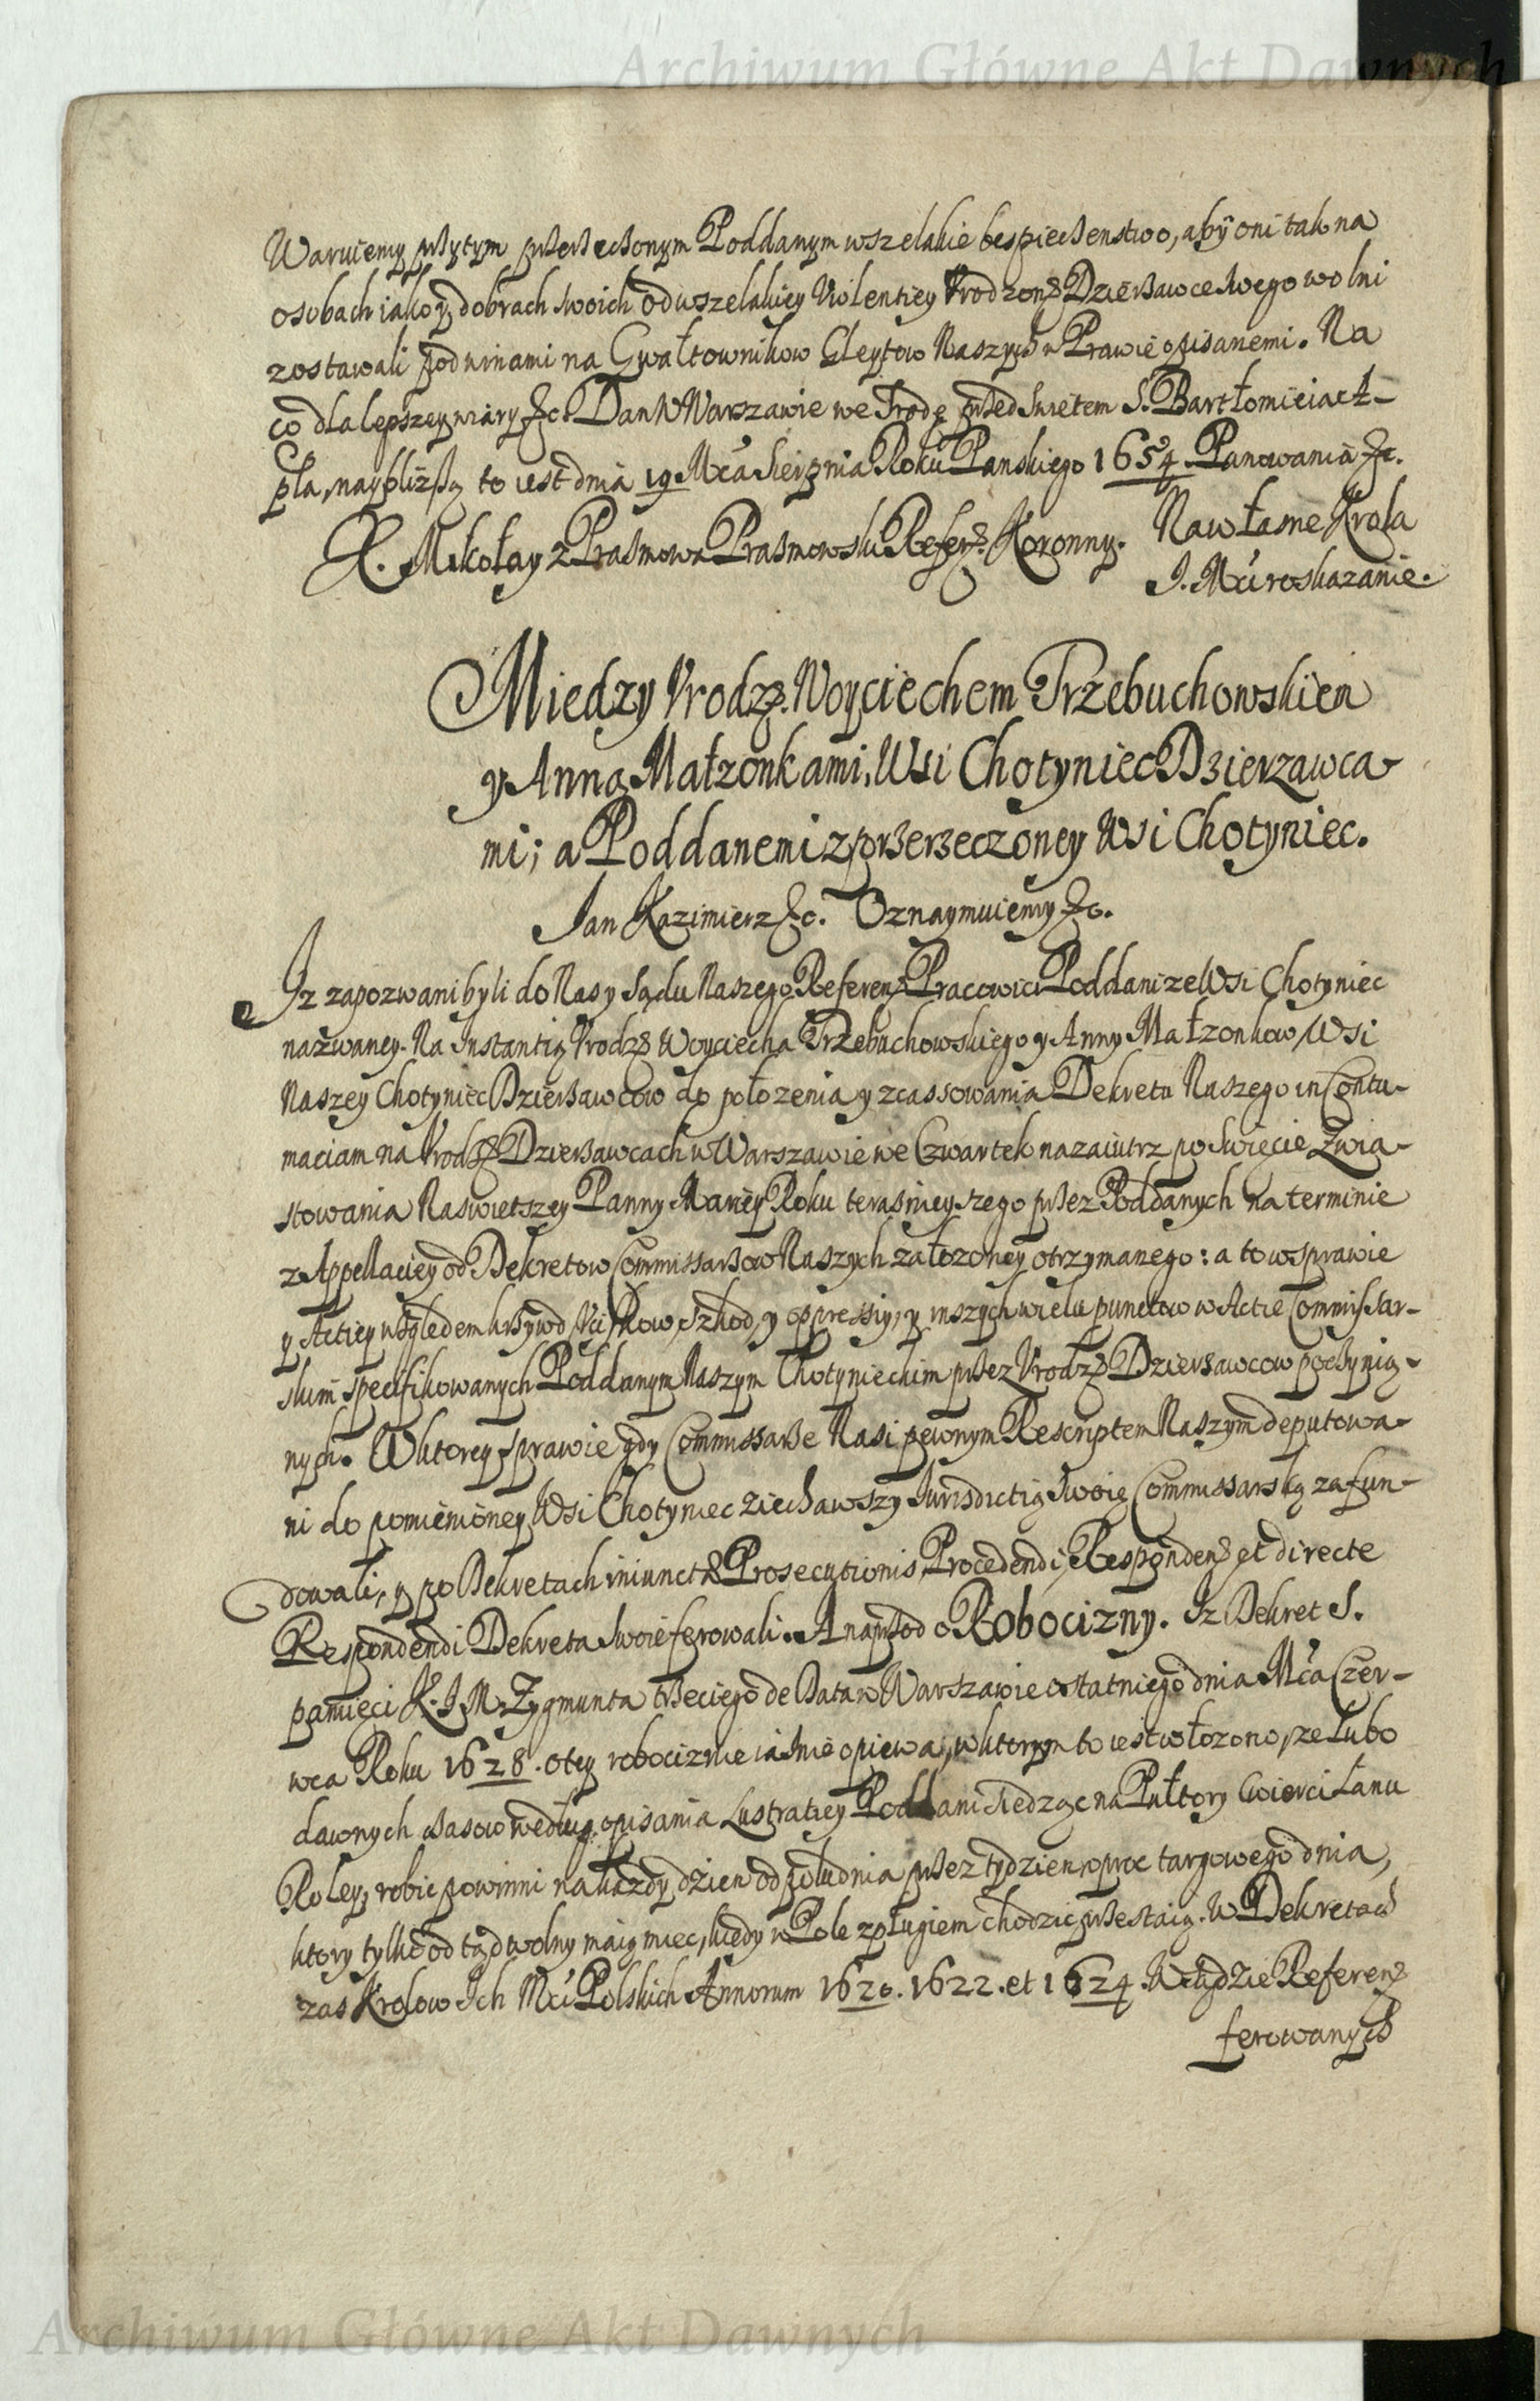 Archiwum Główne Akt Dawnych
Waruiemy przytym przerzeczonym Poddanym wszelakie bespieczenstwo, aby oni tak na
osobach iako y dobrach swoich od wszelakiey Violentiey Vrodzone° Dzierzawce swego wolni
zostawali pod winami na Gwałtownikow Gleytow Naszych w Prawie opisanemi. Na
co dla lepszey wiary &c. Dan W Warszawie we Srodę przed Swietem S. Bartłomieia A-
pła, naybliższą to iest dnia 19 Mca Sierpnia Roku Panskiego 1654 Panowania &c.
X. Mikołay z Prazmowa Prazmowski Refer: Koronny. Na własne Krola
J. Mci roskazanie.
Miedzy Vrodz. Woyciechem Trzebuchowskiem
y Anną Małzonkami, Wsi Chotyniec Dzierzawca-
mi; a Poddanemi z przerzeczoney Wsi Chotyniec.
Jan Kazimierz &c. Oznaymuiemy &c.
Iz zapozwani byli do Nas y Sądu Naszego Referen: Pracowici Poddani ze Wsi Chotyniec
nazwaney. Na Instantią Vrodz: Woyciecha Trzebuchowskiego y Anny Małzonkow, Wsi
Naszey Chotyniec Dzierzawcow do połozenia y zcassowania Dekretu Naszego in Contu-
maciam na Vrodz: Dzierzawcach w Warszawie we Czwartek nazaiutrz po Swięcie Zwia-
stowania Naswietszey Panny Mariey Roku terasnieyszego przez Poddanych na terminie
z Appellaciey od Dekretow Commissarzow Naszych załozoney otrzymanego: a to w sprawie
y Actiey względem krzywd, Vciskow, Szkod, y oppressiy, y inszych wielu punctow w Actie Commissar-
skim specifikowanych Poddanym Naszym Chotynieckim przez Vrodz: Dzierzawcow poczynio-
nych. W ktorey sprawie gdy Commissarze Nasi pewnym Rescriptem Naszym deputowa-
ni do pomienioney Wsi Chotyniec ziechawszy Iurisdictią swoię Commissarską zafun-
dowali, y po Dekretach iniunctae Prosecutionis, Procedendi, Responden: et directe
Respondendi Dekreta swoie ferowali. A naprzod o Robocizny. Iz Dekret S.
pamięci K. J. M. Zygmunta trzeciego de Data w Warszawie ostatniego dnia Mca Czer-
wca Roku 1628. o tey robociznie iasnie opiewa, w ktorym to iest włozono, ze lubo
dawnych czasow według opisania Lustratiey Poddani siedząc na Pułtory Cwierci Łanu
Roley, robic powinni na kazdy dzien od południa przez tydzien, oproc targowego dnia,
ktory tylko od tąd wolny maią miec, kiedy w Pole z pługiem chodzic przestaią. W Dekretach
zas Krolow Ich Mci Polskich Annorum 1620. 1622. et 1624. W Sądzie Referen:
ferowanych
Archiwum Główne Akt Dawnych